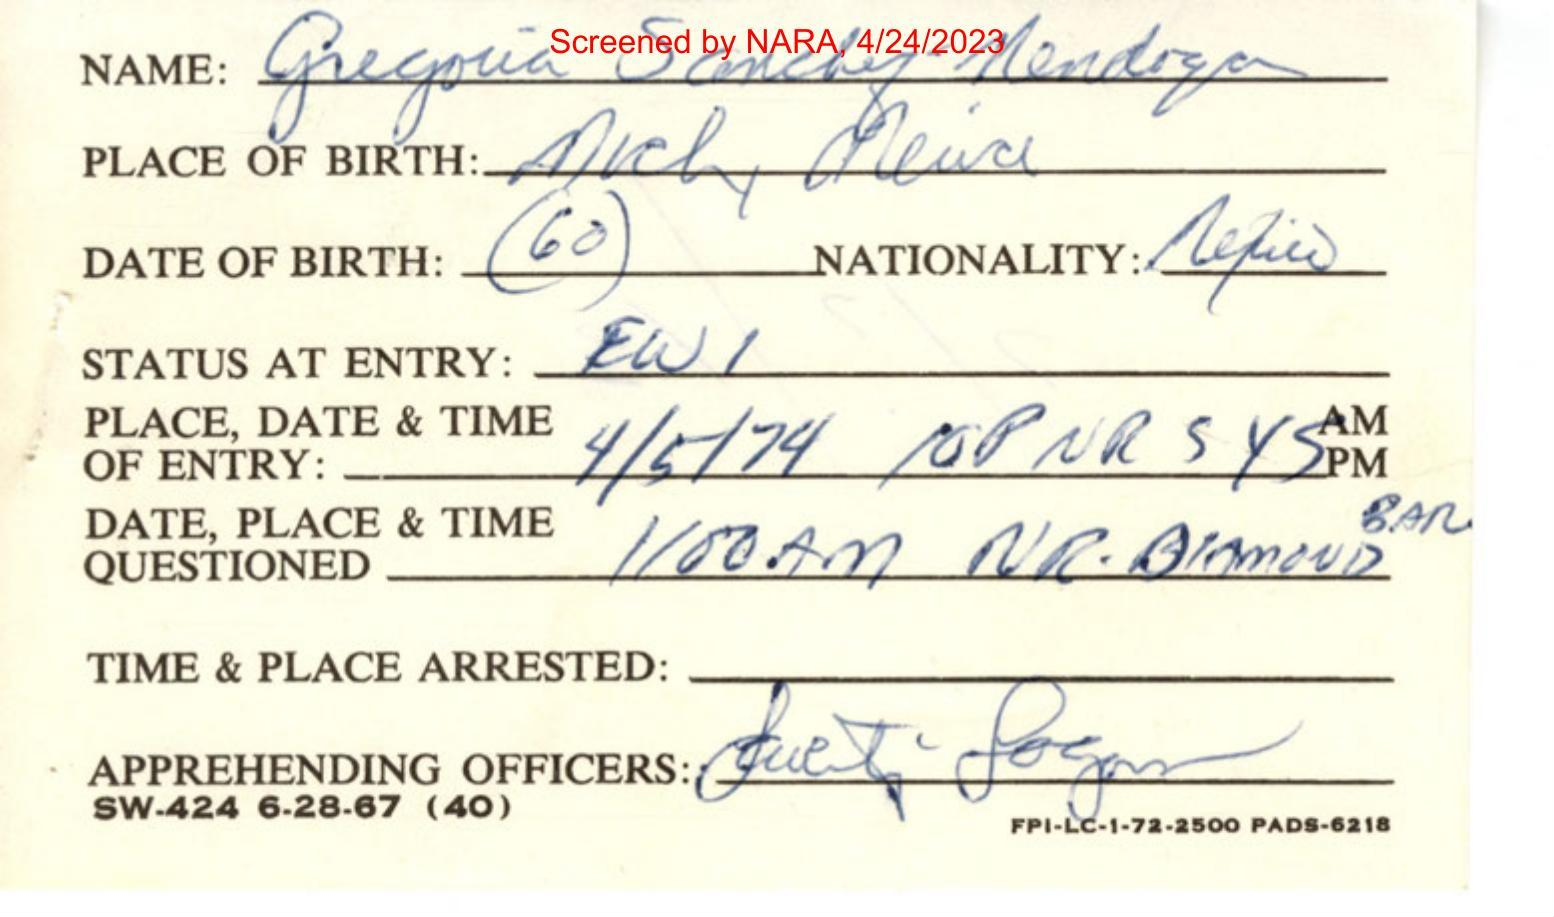 Screened by NARA, 4/24/2023
NAME: Gregoria Sanchez-Mendoza
PLACE OF BIRTH: Mich, Mexico
DATE OF BIRTH: (60) NATIONALITY: Mexico
STATUS AT ENTRY: EWI
PLACE, DATE & TIME AM
OF ENTRY: 4/5/74 10P NR S YS PM
DATE, PLACE & TIME BAR
QUESTIONED 1:00 AM NR. DIAMOND
TIME & PLACE ARRESTED:
APPREHENDING OFFICERS: Logan
SW-424 6-28-67 (40)
FPI-LC-1-72-2500 PADS-6218